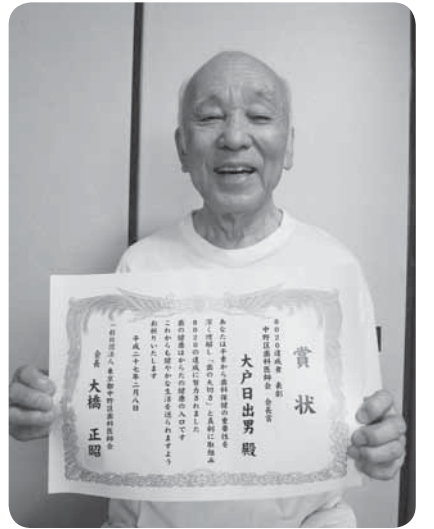 賞状
8020達成者 表彰
中野区歯科医師会 会長賞
大戸日出男 殿
あなたは平素から歯科保健の重要性を
深く理解し「歯の大切さ」と真剣に取組み
8020の達成に努力されました
歯の健康はからだの健康の入口です
これからも健やかな生活を送られますよう
お祈りいたします
平成二十七年二月八日
一般社団法人 東京都中野区歯科医師会
会長 大橋 正昭